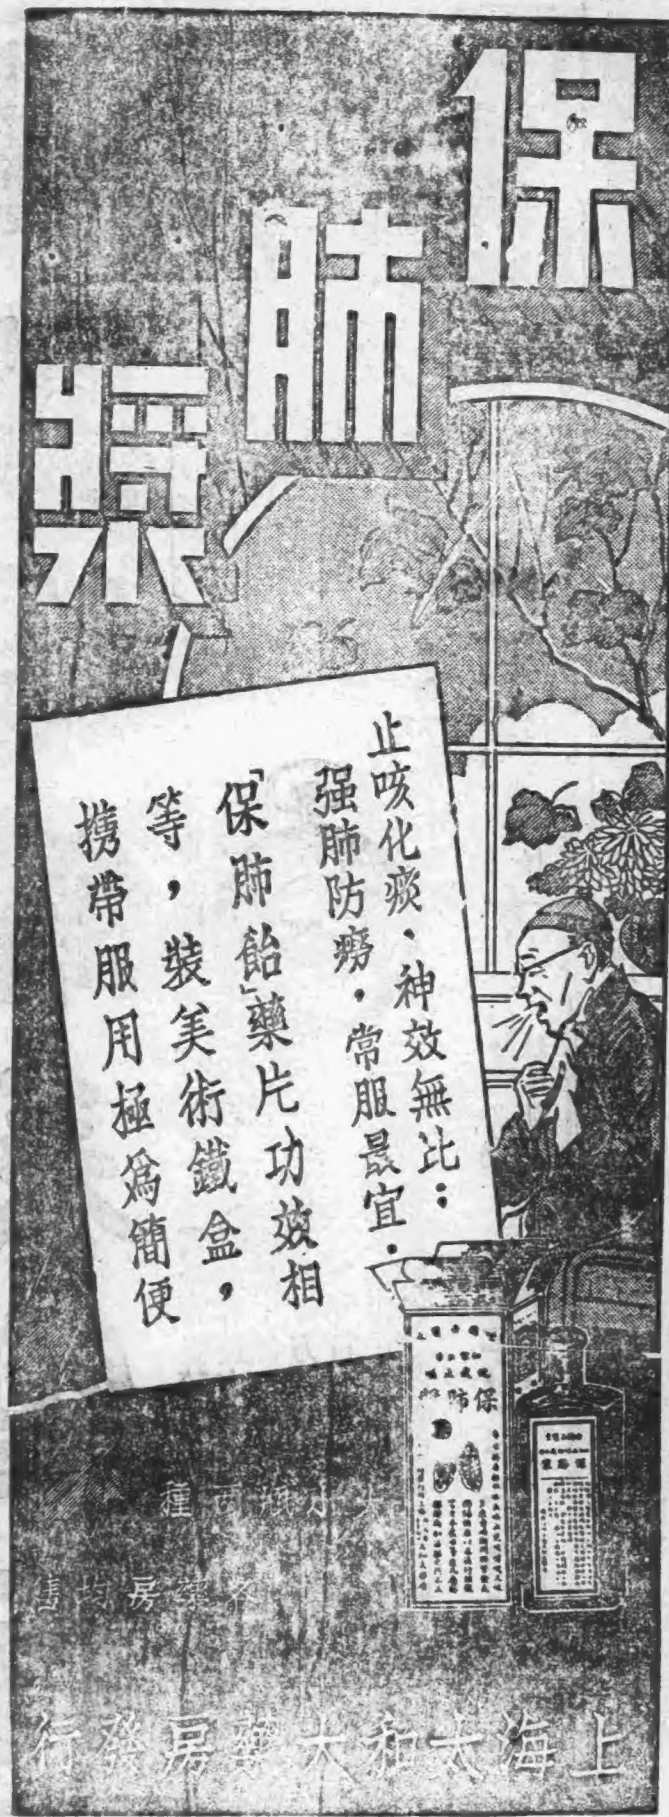 保肺漿
止咳化痰、神效無比；
强肺防癆，常服最宜．
「保肺飴」藥片功效相
等，裝美術鐵盒，
携帶服用極爲簡便
保肺漿
保肺漿
大小瓶两種
各藥房均售
上海太和大藥房發行